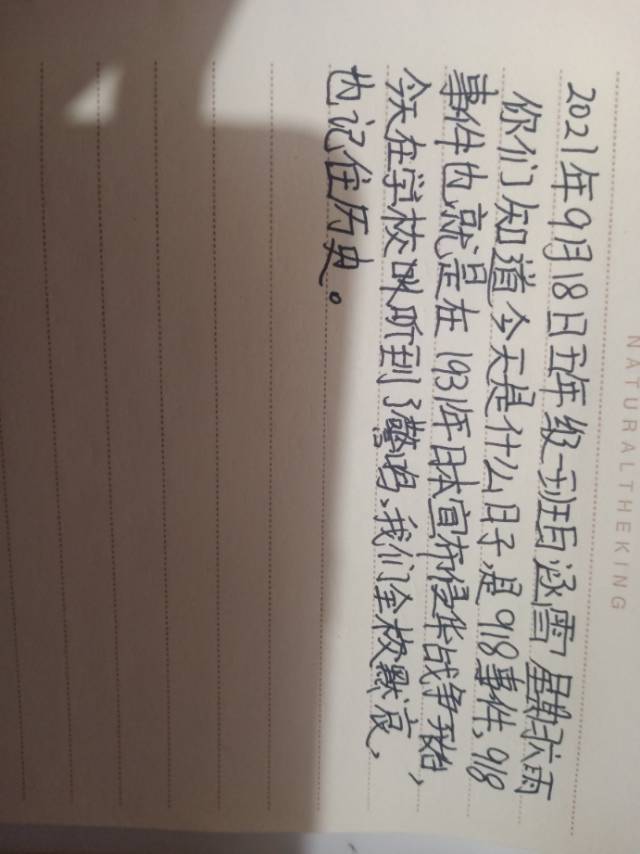 NATURALTHEKING
2021年9月18日五年级一班吕涵雪 星期六雨
你们知道今天是什么日子,是918事件,918
事件也就是在1931年日本宣布侵华战争开始,
今天在学校 听到了警鸣,我们全校默哀,
也记住历史。